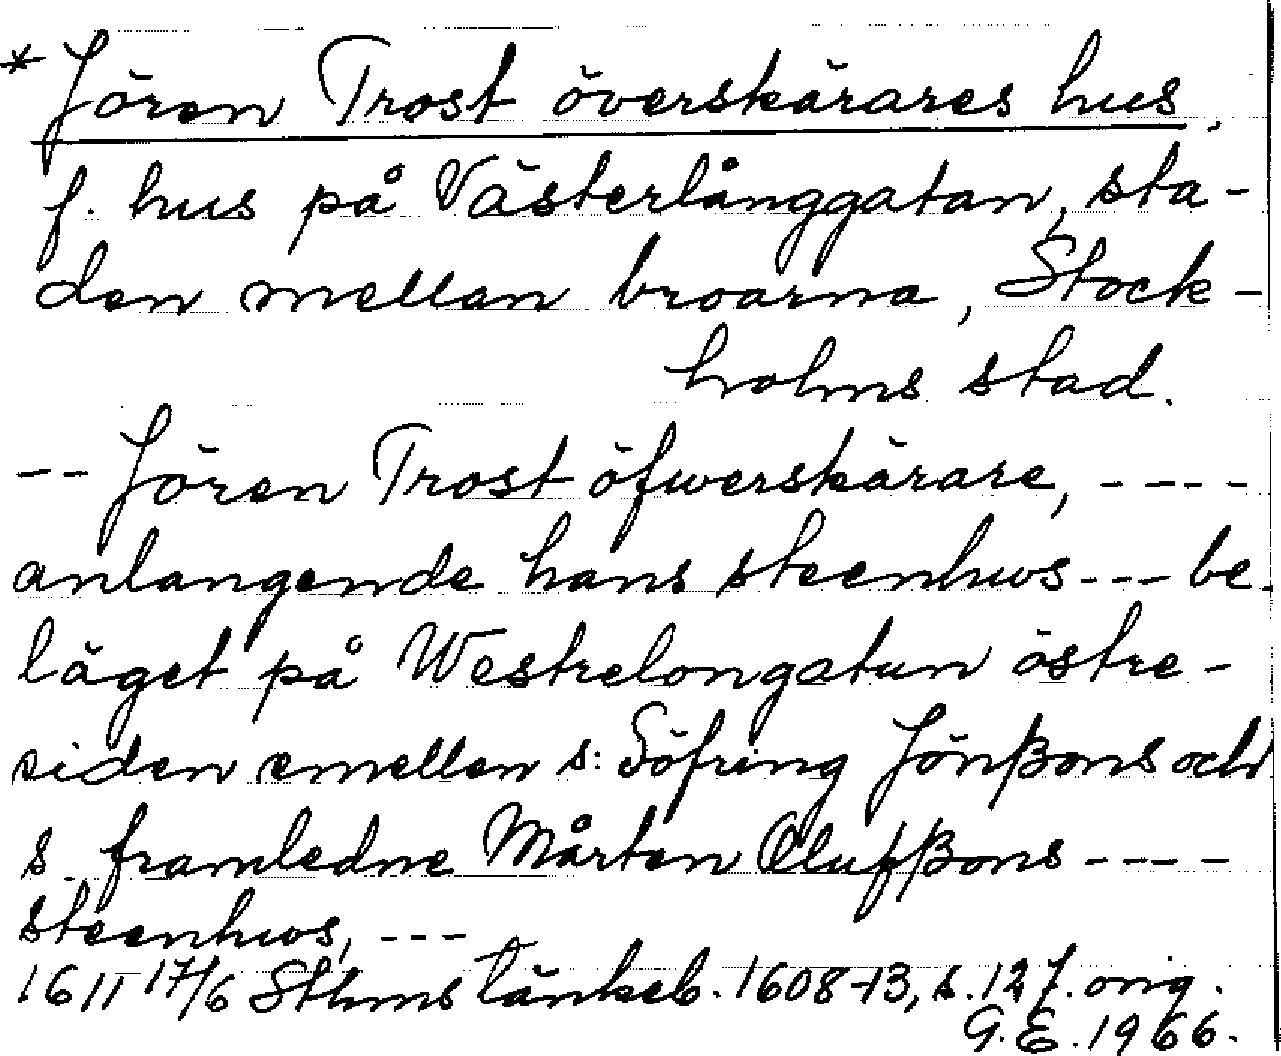 * Jören Trost överskärares hus.
f. hus på Västerlånggatan, sta-
den mellan broarna, Stock-
holms stad.
-- Jören Trost öfwerskärare, ----
anlangende hans steenhws --- be-
läget på Westrelongatun östre-
siden emellen s: Söfring Jönßons och
s. framledne Mårten Olufßons ----
steenhws, ---
1611 17/6 Sthms tänkeb. 1608-13, s. 127. orig.
G.E. 1966.